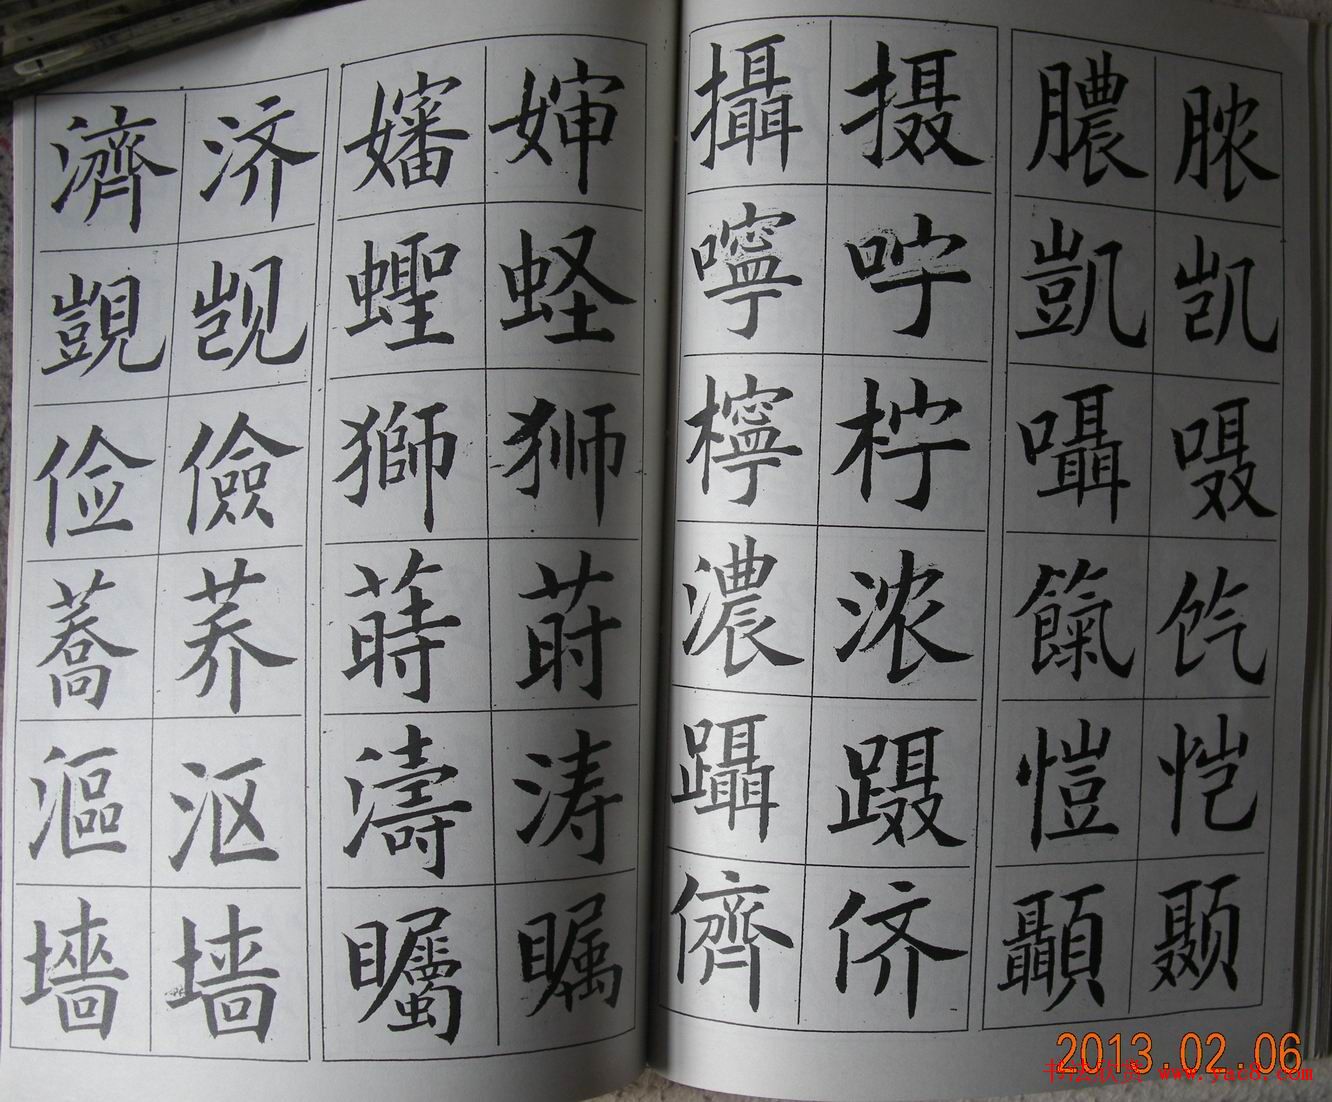 濟 济 嬸 婶
覬 觊 蟶 蛏
俭 儉 獅 狮
蕎 荞 蒔 莳
漚 沤 濤 涛
墻 墙 矚 瞩
攝 摄 膿 脓
嚀 咛 凱 凯
檸 柠 囁 嗫
濃 浓 餼 饩
躡 蹑 愷 恺
儕 侪 顳 颞
2013.02.06
书法欣赏 www.yac8.com